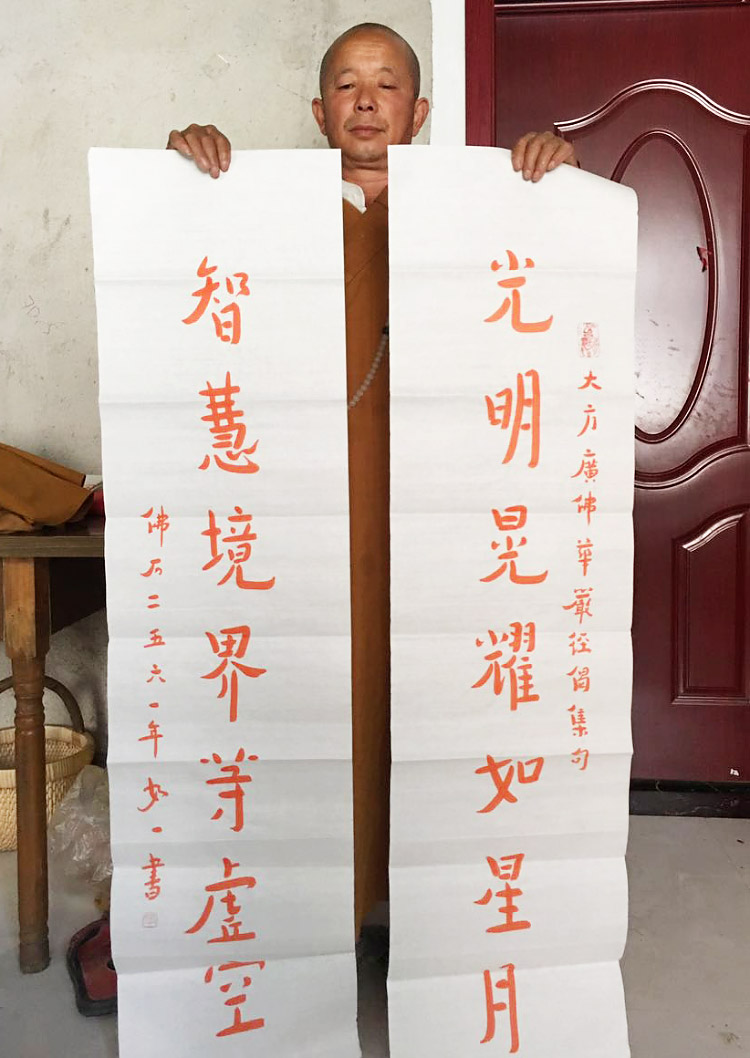 大方廣佛華嚴經偈集句
光明晃耀如星月
智慧境界等虛空
佛历二五六一年如一書